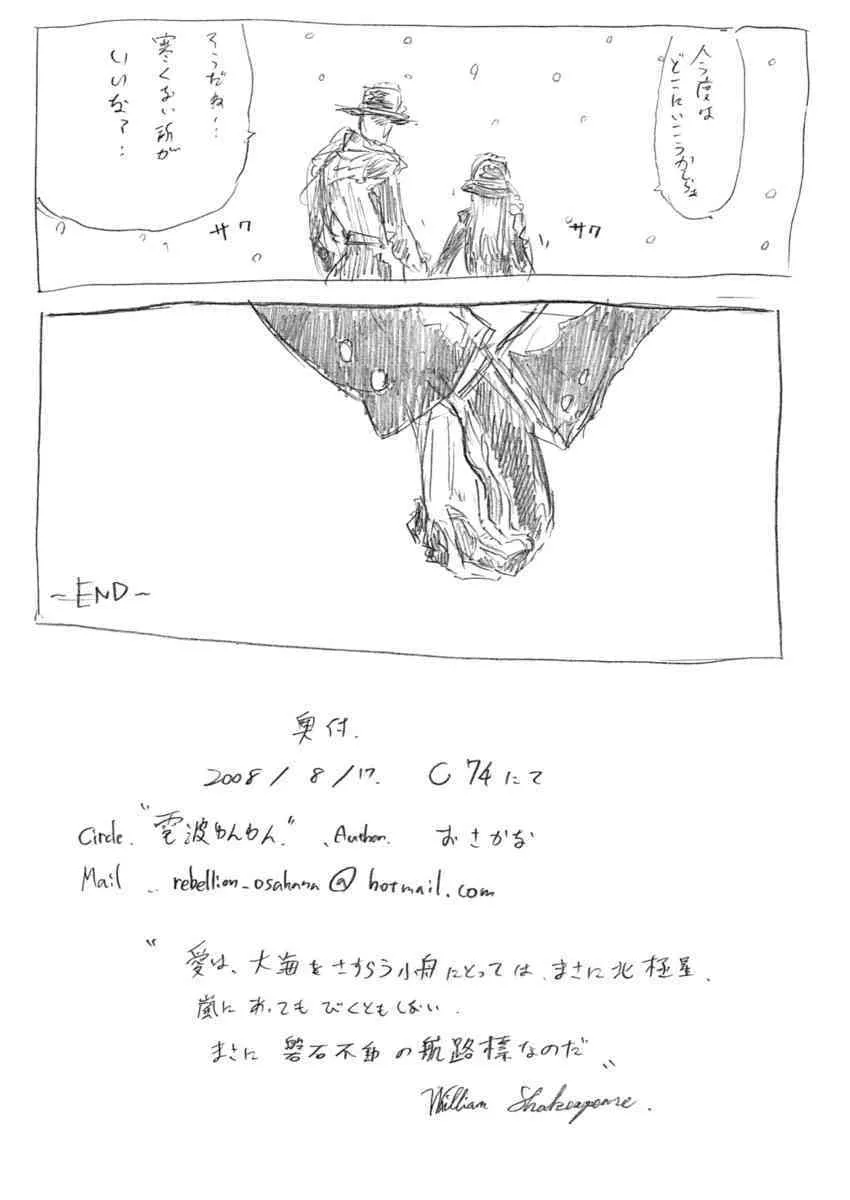 今度は
どこにいこうかしら
そうだね…
寒くない所が
いいなァ…
サク
サク
~END~
奥付.
2008/8/17. C74にて
Circle. "電波わんわん" 、Author. おさかな
Mail … rebellion_osakana@hotmail.com
" 愛は、大海をさすらう小舟にとっては、まさに北極星.
嵐にあってもびくともしない.
まさに 磐石不動の航路標なのだ "
William Shakespeare.